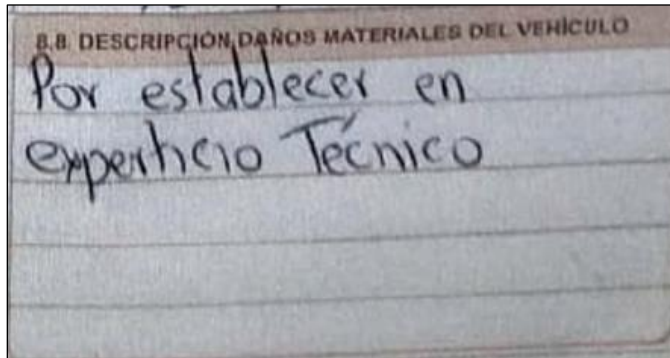 8.8. DESCRIPCIÓN DAÑOS MATERIALES DEL VEHÍCULO
Por establecer en
experticio Técnico